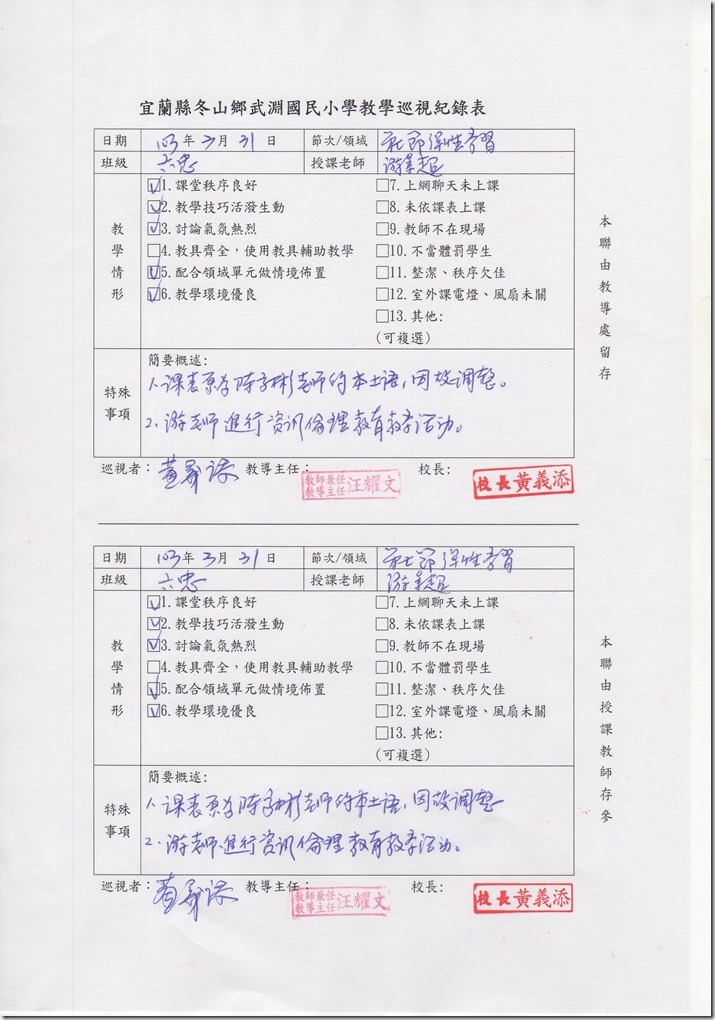 宜蘭縣冬山鄉武淵國民小學教學巡視紀錄表
日期 103 年 3 月 31 日 節次/領域 彈性學習
班級 六忠 授課老師 游
教學情形
☑1. 課堂秩序良好 □7. 上網聊天未上課
☑2. 教學技巧活潑生動 □8. 未依課表上課
☑3. 討論氣氛熱烈 □9. 教師不在現場
□4. 教具齊全，使用教具輔助教學 □10. 不當體罰學生
☑5. 配合領域單元做情境佈置 □11. 整潔、秩序欠佳
☑6. 教學環境優良 □12. 室外課電燈、風扇未關
□13. 其他:
(可複選)
特殊事項
簡要概述:
1. 課表原為陳 老師的本土語，因故調整。
2. 游老師進行資訊倫理教育教學活動。
巡視者：黃義添 教導主任： 教師兼任教導主任 汪耀文 校長: 校長黃義添
本聯由教導處留存
日期 103 年 3 月 31 日 節次/領域 彈性學習
班級 六忠 授課老師 游
教學情形
☑1. 課堂秩序良好 □7. 上網聊天未上課
☑2. 教學技巧活潑生動 □8. 未依課表上課
☑3. 討論氣氛熱烈 □9. 教師不在現場
□4. 教具齊全，使用教具輔助教學 □10. 不當體罰學生
☑5. 配合領域單元做情境佈置 □11. 整潔、秩序欠佳
☑6. 教學環境優良 □12. 室外課電燈、風扇未關
□13. 其他:
(可複選)
特殊事項
簡要概述:
1. 課表原為陳 老師的本土語，因故調整
2. 游老師進行資訊倫理教育教學活動。
巡視者：黃義添 教導主任： 教師兼任教導主任 汪耀文 校長: 校長黃義添
本聯由授課教師存參